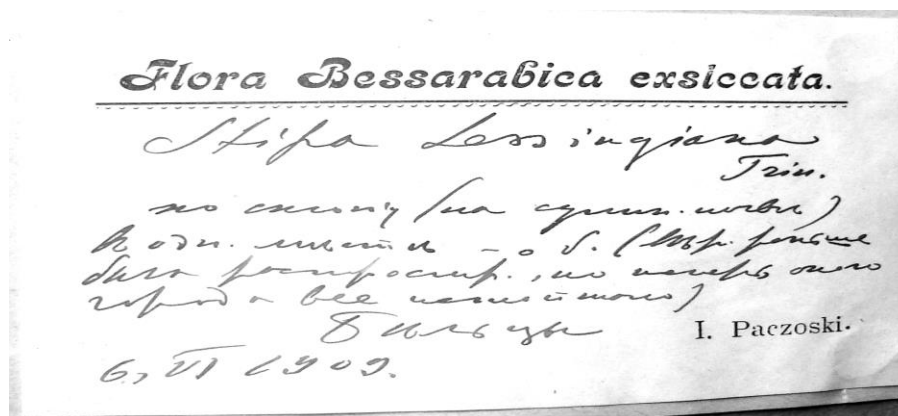 Flora Bessarabica exsiccata.
Stipa Lessingiana
Trin.
по склону (на суглин. почвѣ)
въ одн. мѣстѣ – о б. (вѣр. раньше
была распростр., но теперь около
города все
Бѣльцы
I. Paczoski.
6, VI 1909.